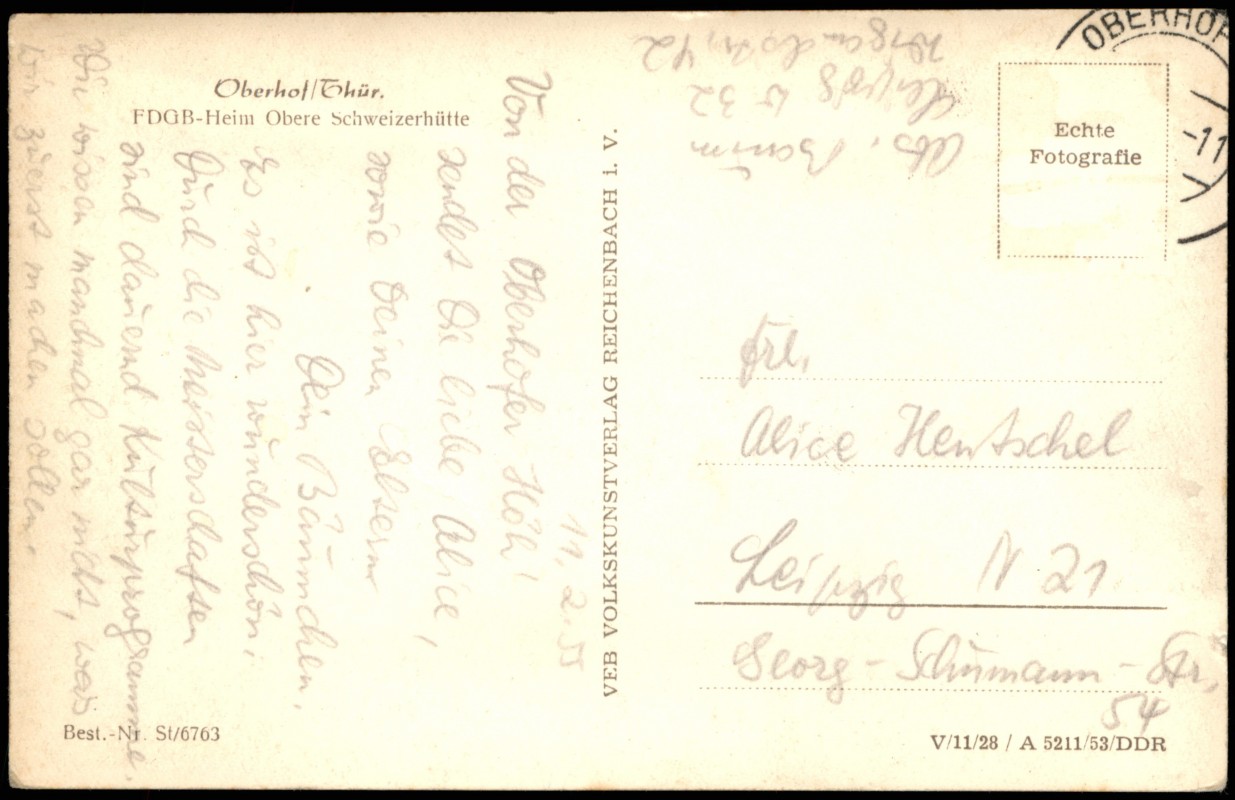 Oberhof/Thür.
FDGB-Heim Obere Schweizerhütte
11. 2. 55
Von der Oberhofer Höh!
sendet Die liebe Alice,
sowie Deinen Eltern
Dein Bäumchen.
Es ist hier wunderschön;
Durch die Meisterschaften
sind dauernd Kulturprogramme.
Wir wissen manchmal gar nicht, was
wir zuerst machen sollen.
Best.-Nr. St/6763
VEB VOLKSKUNSTVERLAG REICHENBACH i. V.
Abs. Baum
Leipzig W 32
42
OBERHOF
-11
Echte
Fotografie
Frl.
Alice Hentschel
Leipzig N 21
Georg-Schumann-Str.
54
V/11/28 / A 5211/53/DDR